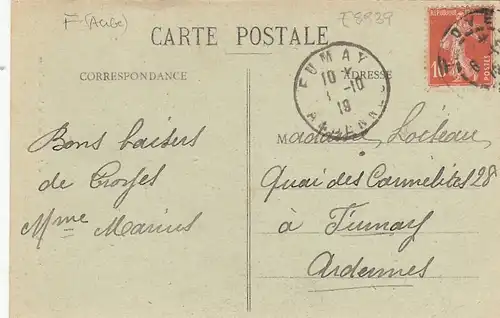 F (Aube)
E8939
CARTE POSTALE
CORRESPONDANCE
ADRESSE
FUMAY
10 X
1 -10
19
ARDENNES
10
Bons baisers
de Troyes
Mme Marius
Madame Loiseau
Quai des Carmélites 28
à Fumay
Ardennes